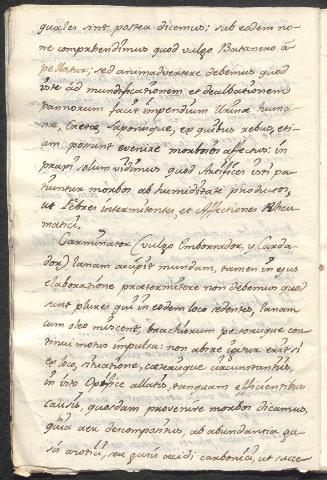 quales sint postea dicemus: sub eodem no-
ne comprhendimus quod vulgo Batanero á-
pellatur; sed animadvertere debemus quod
iste ad mundificationem et dealbationem
pannorum facit impendium Urinæ huma-
næ, Cretæ, Saponisque, ex quibus rebus, eti-
am possunt evenire morbosos affectus: in
praxi solum vidimus quod Artifices isti pa-
tiuntur morbos ab humiditate productos,
ut febres intermitentes, et Affectiones Rheu-
maticas.
Carminator (vulgo Emborrador, y Carda-
dor) lanam accipit mundam, tamen in ejus
elaboratione prætermitere non debemus quod
sunt plures qui in eodem loco sedentes, lanam
cum oleo miscent, brachiorum pectorisque con-
tinui motus impulsu: non abs re igitur erit si
ex loco, situatione, cæterisque circunstantiis,
in isto Opifice allatis, tanquam efficientibus
causis, quosdam provenire morbos dicamus,
quia aer descompositus, ab abundantia ga-
sis azotici, seu gasis acidi carbonici, ut succe-